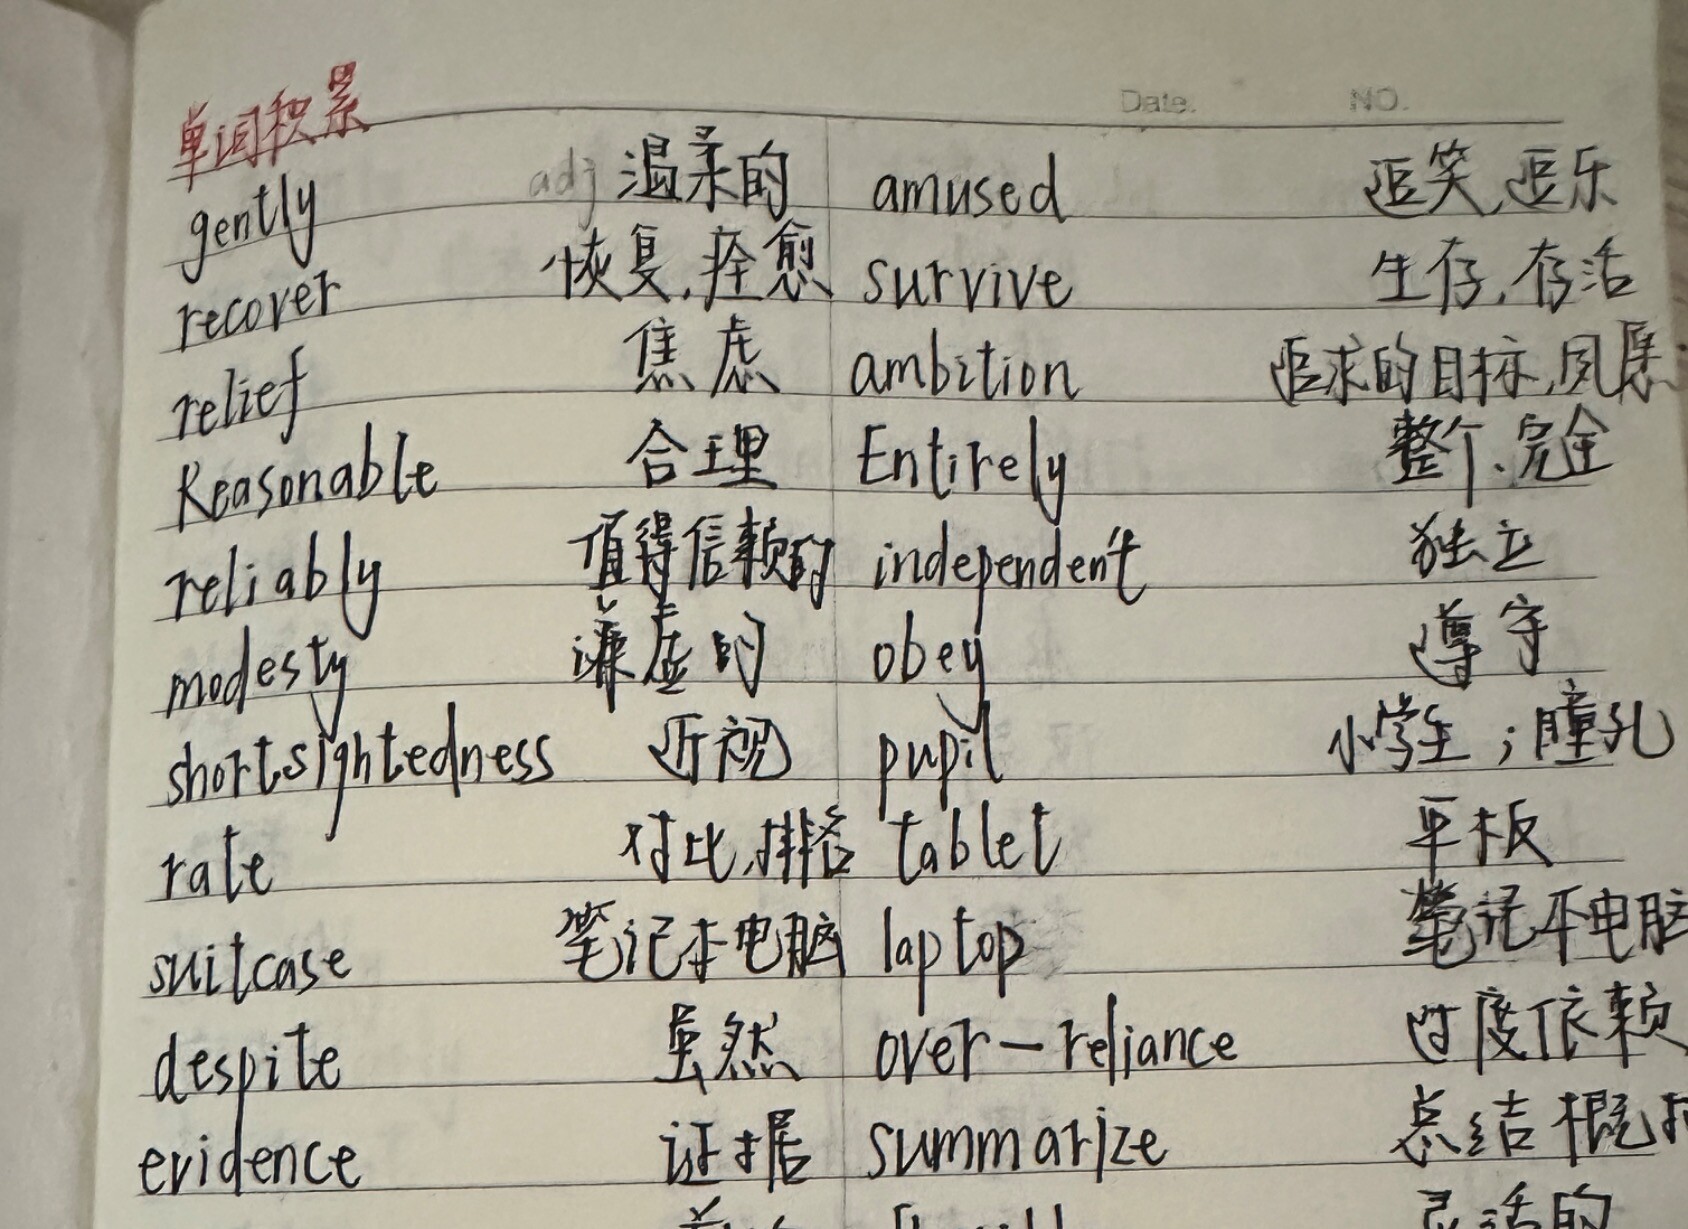 Date. NO.
单词积累
gently adj 温柔的 amused 逗笑,逗乐
recover 恢复,痊愈 survive 生存,存活
relief 焦虑 ambition 追求的目标,夙愿
Reasonable 合理 Entirely 整个、完全
reliably 值得信赖的 independent 独立
modesty 谦虚的 obey 遵守
shortsightedness 近视 pupil 小学生;瞳孔
rate 对比, tablet 平板
suitcase 笔记本电脑 laptop 笔记本电脑
despite 虽然 over-reliance 过度依赖
evidence 证据 summarize 总结概
灵活的